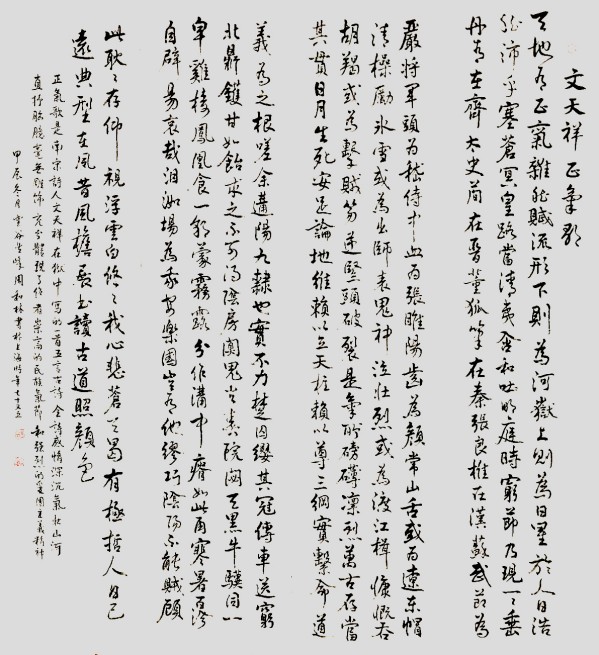 文天祥 正氣歌
天地有正氣雜然賦流形下則為河嶽上則為日星於人曰浩
然沛乎塞蒼冥皇路當清夷含和吐明庭時窮節乃現一一垂
丹青在齊太史簡在晉董狐筆在秦張良椎在漢蘇武節為
嚴將軍頭為嵇侍中血為張睢陽齒為顏常山舌或為遼東帽
清操勵冰雪或為出師表鬼神泣壯烈或為渡江楫慷慨吞
胡羯或為擊賊笏逆豎頭破裂是氣所磅礴凜烈萬古存當
其貫日月生死安足論地維賴以立天柱賴以尊三綱實繫命道
義為之根嗟余遘陽九隸也實不力楚囚纓其冠傳車送窮
北鼎鑊甘如飴求之不可得陰房闃鬼火春院閟天黑牛驥同一
皁雞棲鳳凰食一朝蒙霧露分作溝中瘠如此再寒暑百沴
自辟易哀哉沮洳場為我安樂國豈有他繆巧陰陽不能賊顧
此耿々存仰視浮雲白悠々我心悲蒼天曷有極哲人日已
遠典型在夙昔風檐展書讀古道照顏色
正氣歌是南宋詩人文天祥在獄中寫的一首五言古詩全詩感情深沉氣壯山河
直抒胸臆毫無雕飾充分體現了作者崇高的民族氣節和強烈的愛國主義精神
甲辰冬月 周和林書於上海時年七十又